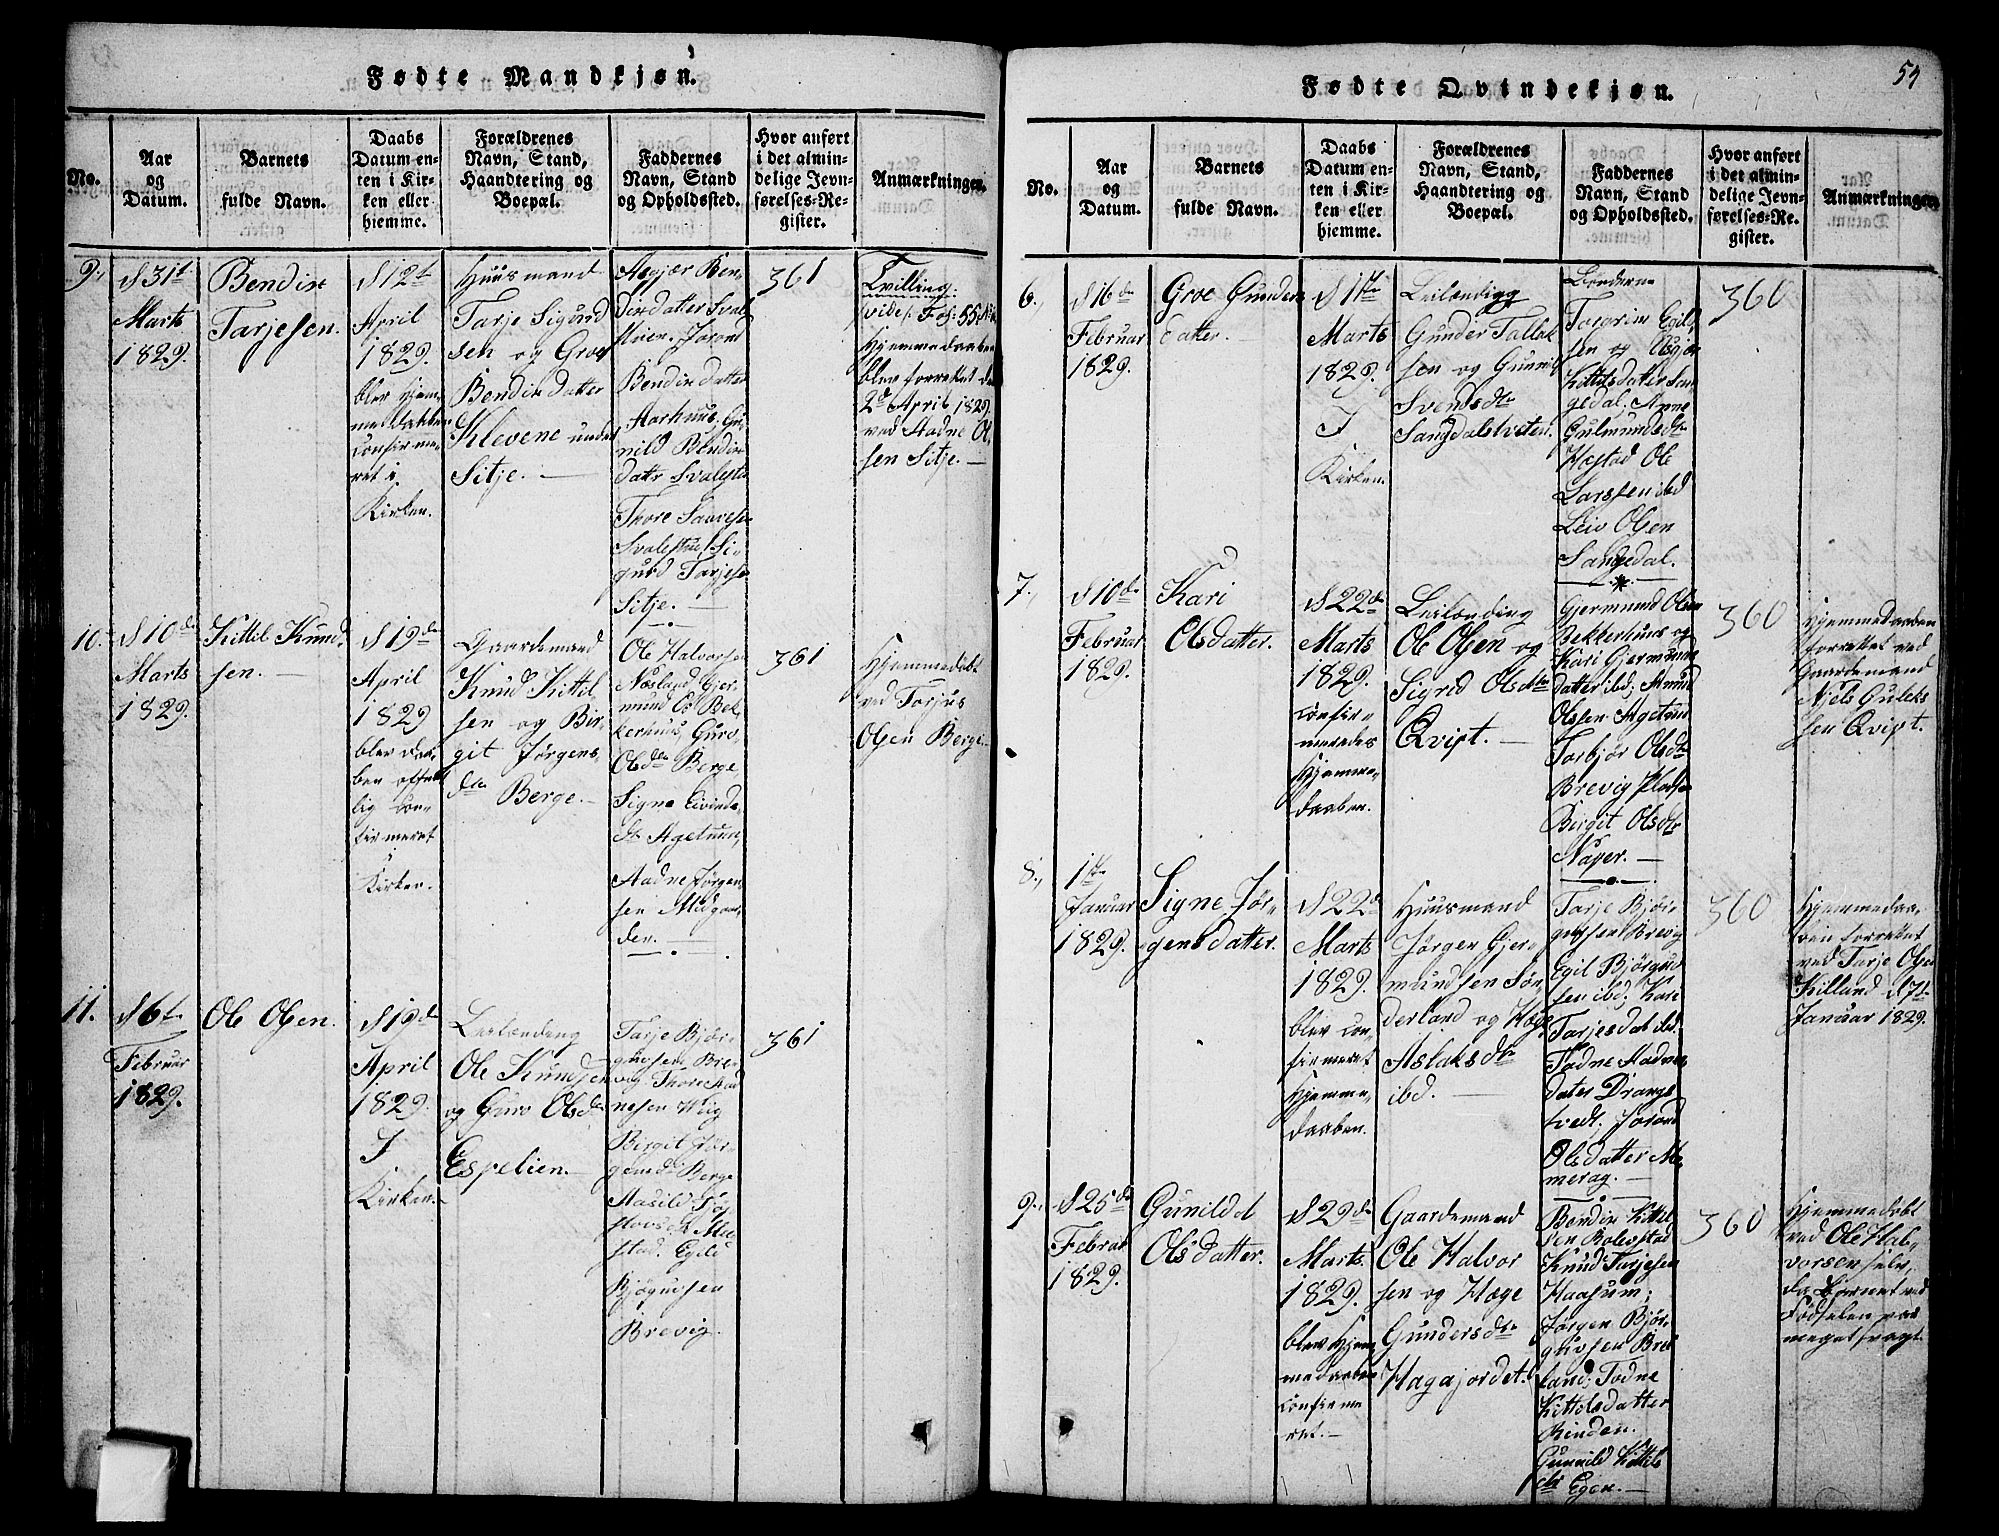 Fødte Mandkjøn.
No.
Aar
og
Datum.
Barnets
fulde Navn.
Daabs
Datum en-
ten i Kir-
ken eller
hjemme.
Forældrenes
Navn, Stand,
Haandtering og
Boepæl.
Faddernes
Navn, Stand
og Opholdssted.
Hvor anført
i det almin-
delige Jevn-
førelses-Re-
gister.
Anmærkninger.
9.
d 31t
Marts
1829.
Bendix
Tarjesen.
d 12t
April
1829.
blev Hjem-
medaaben
confirme-
ret i
Kirken.
Huusmand
Tarje Sigurd
sen og Groe
Bendixdatter
Klevene under
Sitje. —
Asgjær Ben-
dixdatter Sval-
stuen. Jorond
Bendixdatter
Aarhuus, Gu-
nild Bendix
datr Svalestu
Thore Saavesen
Svalestue, Si-
gurd Tarjesen
Sitje. —
361
Tvilling.
vides. Fol: 55.
Hjemmedaaben
blev forrettet d
2d April 1829.
ved Aadne Ol-
sen Sitje. —
10.
d 10de
Marts
1829.
Kittil Knud-
sen. —
d 19de
April
1829
blev daa-
ben offent
lig con-
firmeret
Kirken.
Gaardemand
Knud Kittil
sen og Bir-
git Jørgens
dtr Berge. —
Ole Halvorsen
Næsland, Gjer
mund Ol. Bek-
kerhuus, Guro
Olsdtr Berge,
Signe Eivinds
dt Agetuun,
Aadne Jørgen-
sen Midgaar-
den. —
361
Hjemmedøbt
ved Torjus
Olsen Berge. —
11.
d 6te
Februar
1829.
Ole Olsen.
d 19de
April
1829.
I
Kirken. —
Leilænding
Ole Knudsen
og Guro Olsdtr
Espelien. —
Tarje Bjør-
gufsen Bre-
vig. Thore Aad
nesen Wiig
Birgit Jør-
gensd: Berge
Aasild
stad. Egild
Bjøgufsen
Brevig.
361
54
Fødte Qvindekjøn.
No.
Aar
og
Datum.
Barnets
fulde Navn.
Daabs
Datum en-
ten i Kir-
ken eller
hjemme.
Forældrenes
Navn, Stand,
Haandtering og
Boepæl.
Faddernes
Navn, Stand
og Opholdssted.
Hvor anført
i det almin-
delige Jevn-
førelses-Re-
gister.
Anmærkninger.
6.
d 16de
Februar
1829.
Groe Gunders
datter.
d 1ste
Marts
1829.
I
Kirken.
Leilænding
Gunder Tallak
sen og Gunnil
Svendsdtr
Sangdalstveten.
Torgrim Egild
sen og Asgjær
Kittilsdatter San
gedal. Anne
Gulmundsdtr
Høstad Ole
Larssen ibd
Leiv Olsen
Sangedal.
360
7.
d 10de
Februar
1829.
Kari
Olsdatter.
d 22de
Marts
1829.
confir-
meredes
Hjemme-
daaben.
Leilænding
Ole Olsen og
Sigrid Olsdtr
Qvist. —
Gjermund Olsen
Bekkerhuus og
Kari Gjermunds
datter ibd; Amund
Olssen Agetuun
Torbjør Olsdtr
Brevig Pladsen
Birgit Olsdtr
Naper. —
360
Hjemmedaaben
forrettet ved
Gaardemand
Niels Guleks
sen Qvist.
8.
1ste
Januar
1829.
Signe Jør-
gensdatter.
d 22de
Marts
1829.
blev con-
firmeret
Hjemme-
daaben.
Huusmand
Jørgen Gjer-
mundsen Søn-
derland og Hæge
Aslaksdtr
ibd. —
Tarje Bjør-
gufsen Brevig
Egil Bjørguf
sen ibd; Kari
Tarjesdat ibd.
Todne Aadne
datter Drangs
tvedt; Jorond
Olsdatter Me-
merag. —
360
Hjemmedaa-
ben forrettet
ved Tarje Olsen
Killand d 7t
Januar 1829.
9.
d 25de
Februar
1829.
Gunild
Olsdatter.
d 29de
Marts.
1829.
blev Hjem
medaaben
confirme
ret. —
Gaardemand
Ole Halvor
sen og Hæge
Gundersdtr
Hagajordet.
Bendix Kittel
sen Bolevstad
Knud Tarjesen
Haasum;
Jørgen Bjør-
gufsen Brei
land; Todne
Kittelsdatter
Rinden.
Gunnild Kittels
dtr Egen. —
360
Hjemmedøbt
ved Ole Hal-
vorsen selv,
da Barnet ved
Fødselen var
meget svagt.